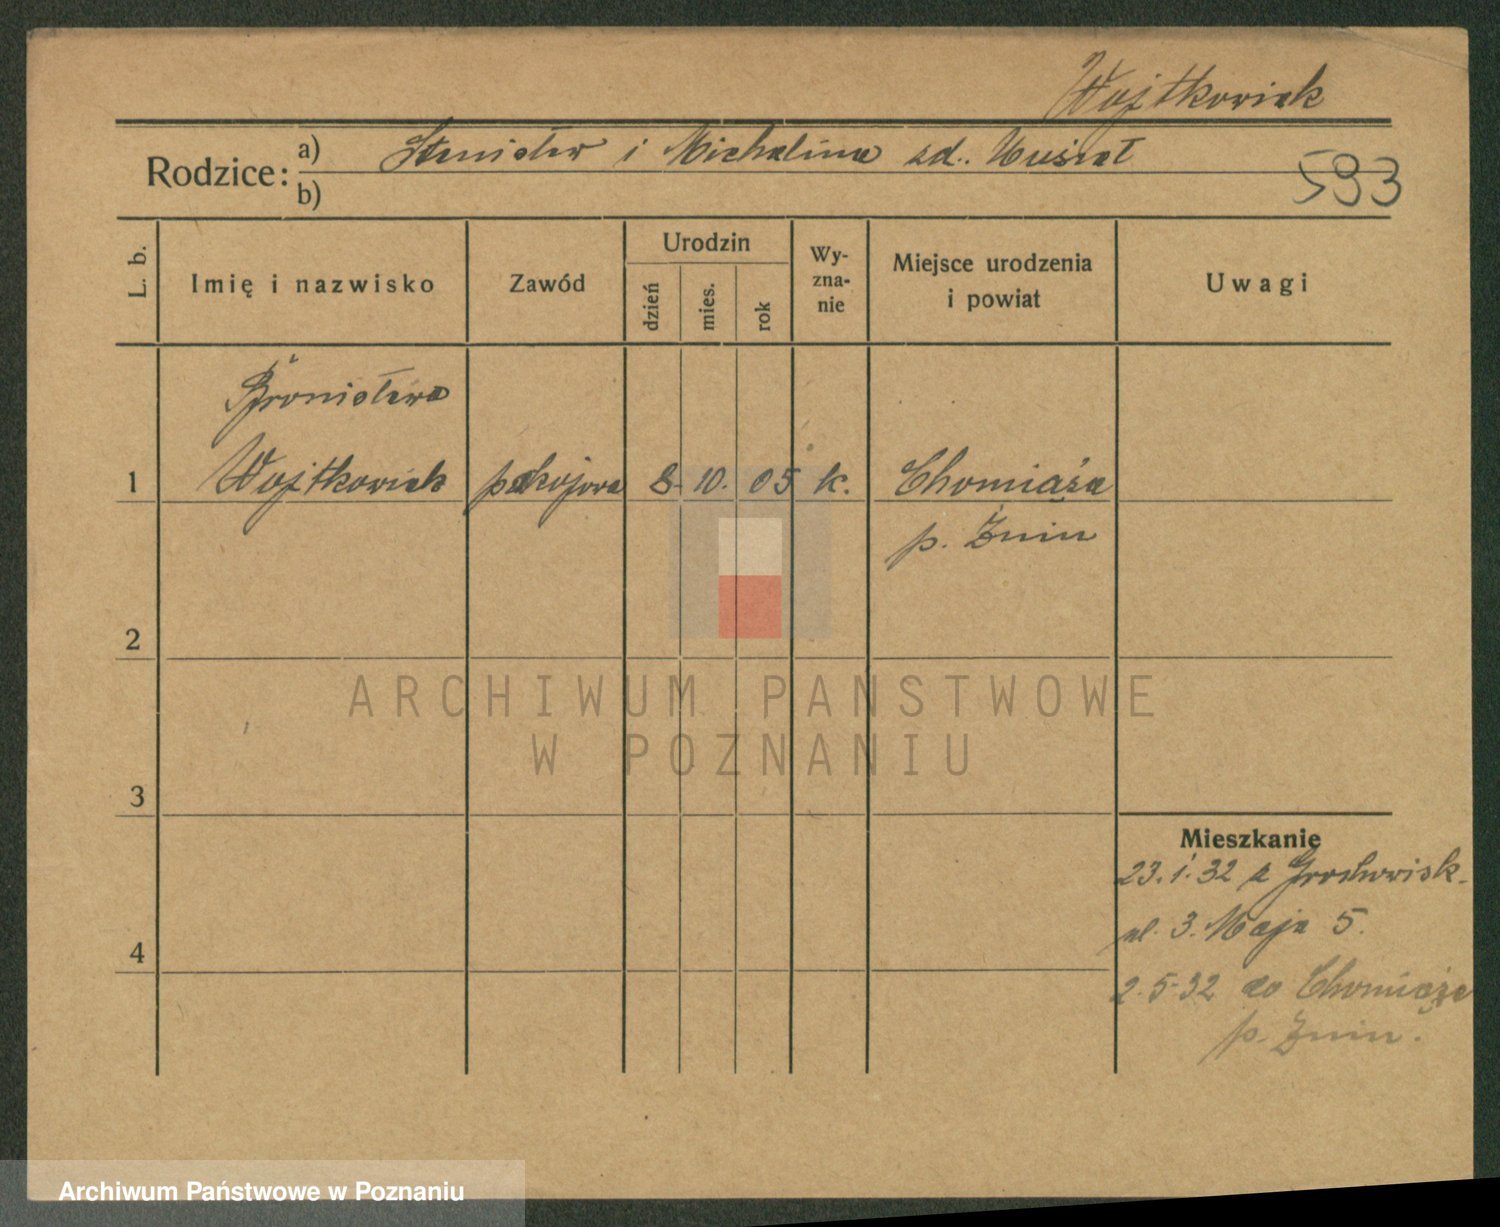 Wojtkowiak
Rodzice: a) Stanisław i Michalina zd. Musiał
b)
593
L. b.
Imię i nazwisko
Zawód
Urodzin
dzień
mies.
rok
Wy-
zna-
nie
Miejsce urodzenia
i powiat
Uwagi
Bronisława
1 Wojtkowiak pokojowa 8. 10. 05 k. Chomiąża
p. Żnin
2
3
4
Mieszkanie
23.1.32 z Grochowisk
ul. 3. Maja 5.
2.5.32 do Chomiąża
p. Żnin.
ARCHIWUM PANSTWOWE
W POZNANIU
Archiwum Państwowe w Poznaniu